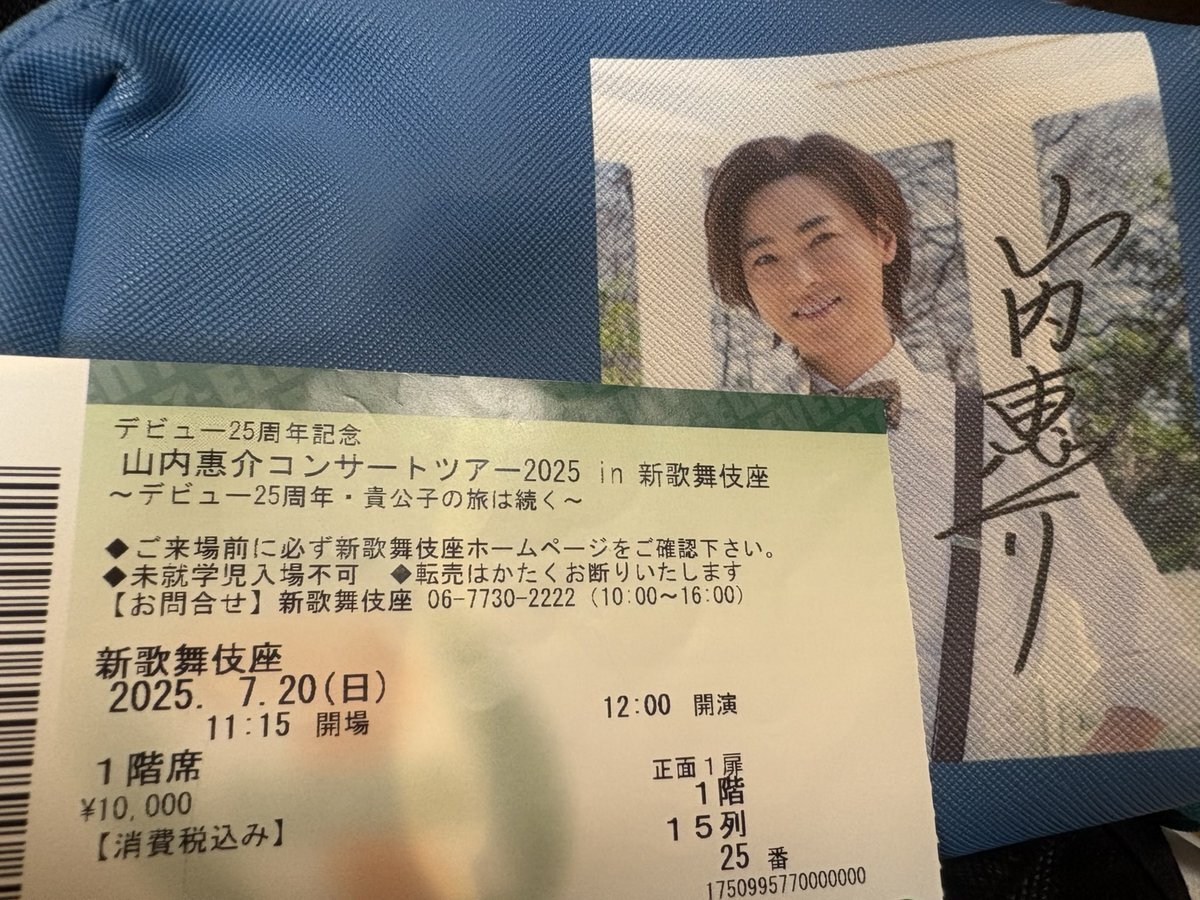 山内惠介
デビュー25周年記念
山内惠介コンサートツアー2025 in 新歌舞伎座
～デビュー25周年・貴公子の旅は続く～
◆ご来場前に必ず新歌舞伎座ホームページをご確認下さい。
◆未就学児入場不可　◆転売はかたくお断りいたします
【お問合せ】新歌舞伎座 06-7730-2222（10:00～16:00）
新歌舞伎座
2025. 7.20(日)
11:15 開場
12:00 開演
1階席
¥10,000
【消費税込み】
正面1扉
1階
15列
25 番
1750995770000000